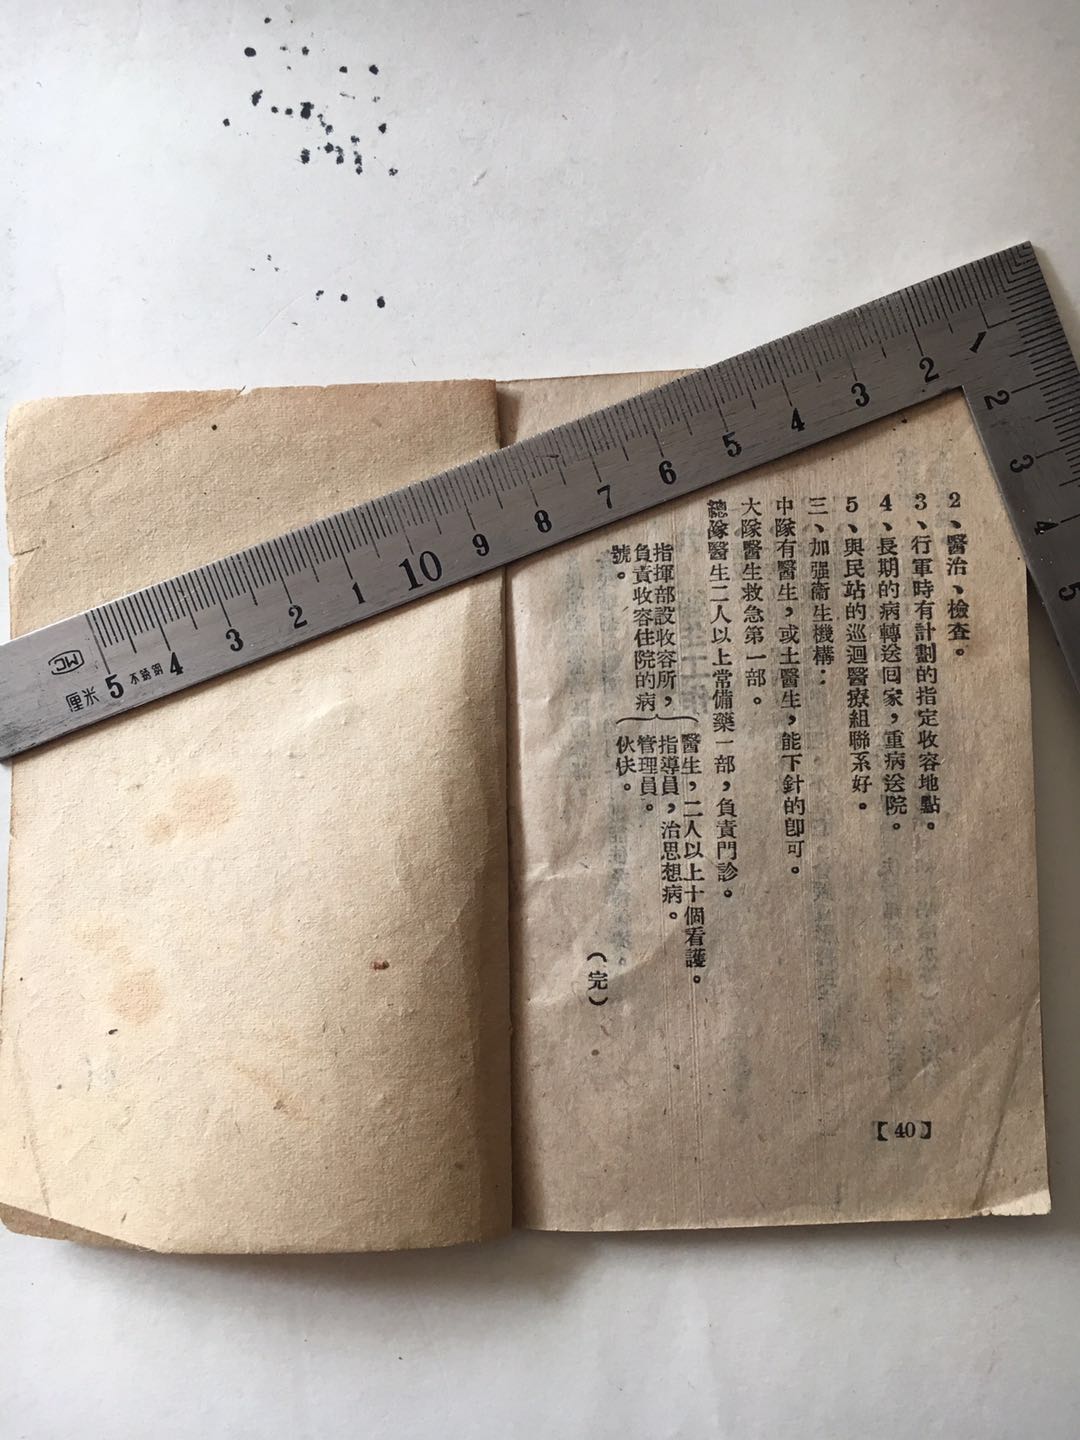 2、醫治、檢查。
3、行軍時有計劃的指定收容地點。
4、長期的病轉送回家，重病送院。
5、與民站的巡迴醫療組聯系好。
三、加强衛生機構：
中隊有醫生，或土醫生，能下針的卽可。
大隊醫生救急第一部。
總隊醫生二人以上常備藥一部，負責門診。
指揮部設收容所，
負責收容住院的病
號。
醫生，二人以上十個看護。
指導員，治思想病。
管理員。
伙伕。
（完）
【40】
1 2 3 4 5 6 7 8 9 10 1 2 3 4 5
2 3 4 5
不銹鋼
厘米
MC